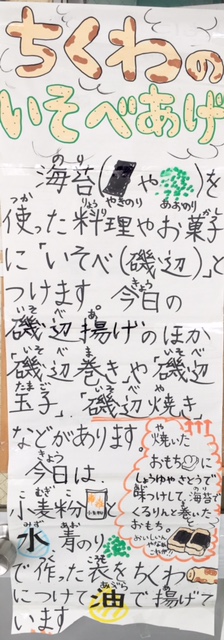 ちくわの
いそべあげ
のり
海苔(や)を
やきのり あおのり
つか りょうり かし
使った料理やお菓子
に「いそべ(磯辺)」と
きょう
つけます。今日の
いそべ あ
磯辺揚げのほか
いそべ ま いそべ
磯辺巻き」や「磯辺
たまご いそべ や
玉子」、「磯辺焼き」
などがあります。
や
焼いた
おもちに
しょうゆやさとうで
味つけして、海苔で
くるりんと巻いた
おもち。
おいしいん
やよねぇ
これが!!
きょう
今日は、
こむぎこ
小麦粉
小麦粉
みず あお
水 青のり
で作った衣をちくわ
あぶら あ
につけて油で揚げて
います